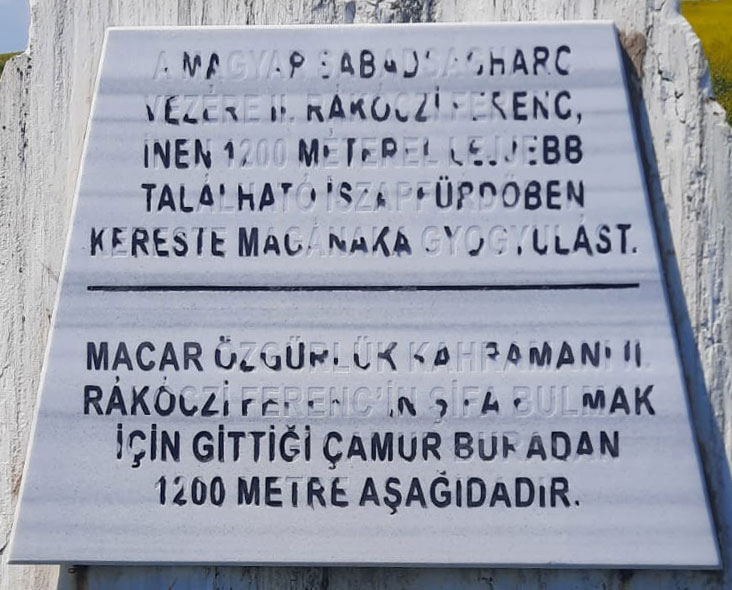 A MAGYAR SABADSAGHARC
VEZÉRE II. RÁKÓCZİ FERENC,
İNEN 1200 MÉTEREL LEJJEBB
TALÁLHATÓ İSZAPFÜRDÖBEN
KERESTE MAGÁNAKA GYOGYULÁST.
MACAR ÖZGÜRLÜK KAHRAMANI II.
RÁKÓCZİ FERENC'İN ŞİFA BULMAK
İÇİN GİTTİĞİ ÇAMUR BURADAN
1200 METRE AŞAĞIDADIR.